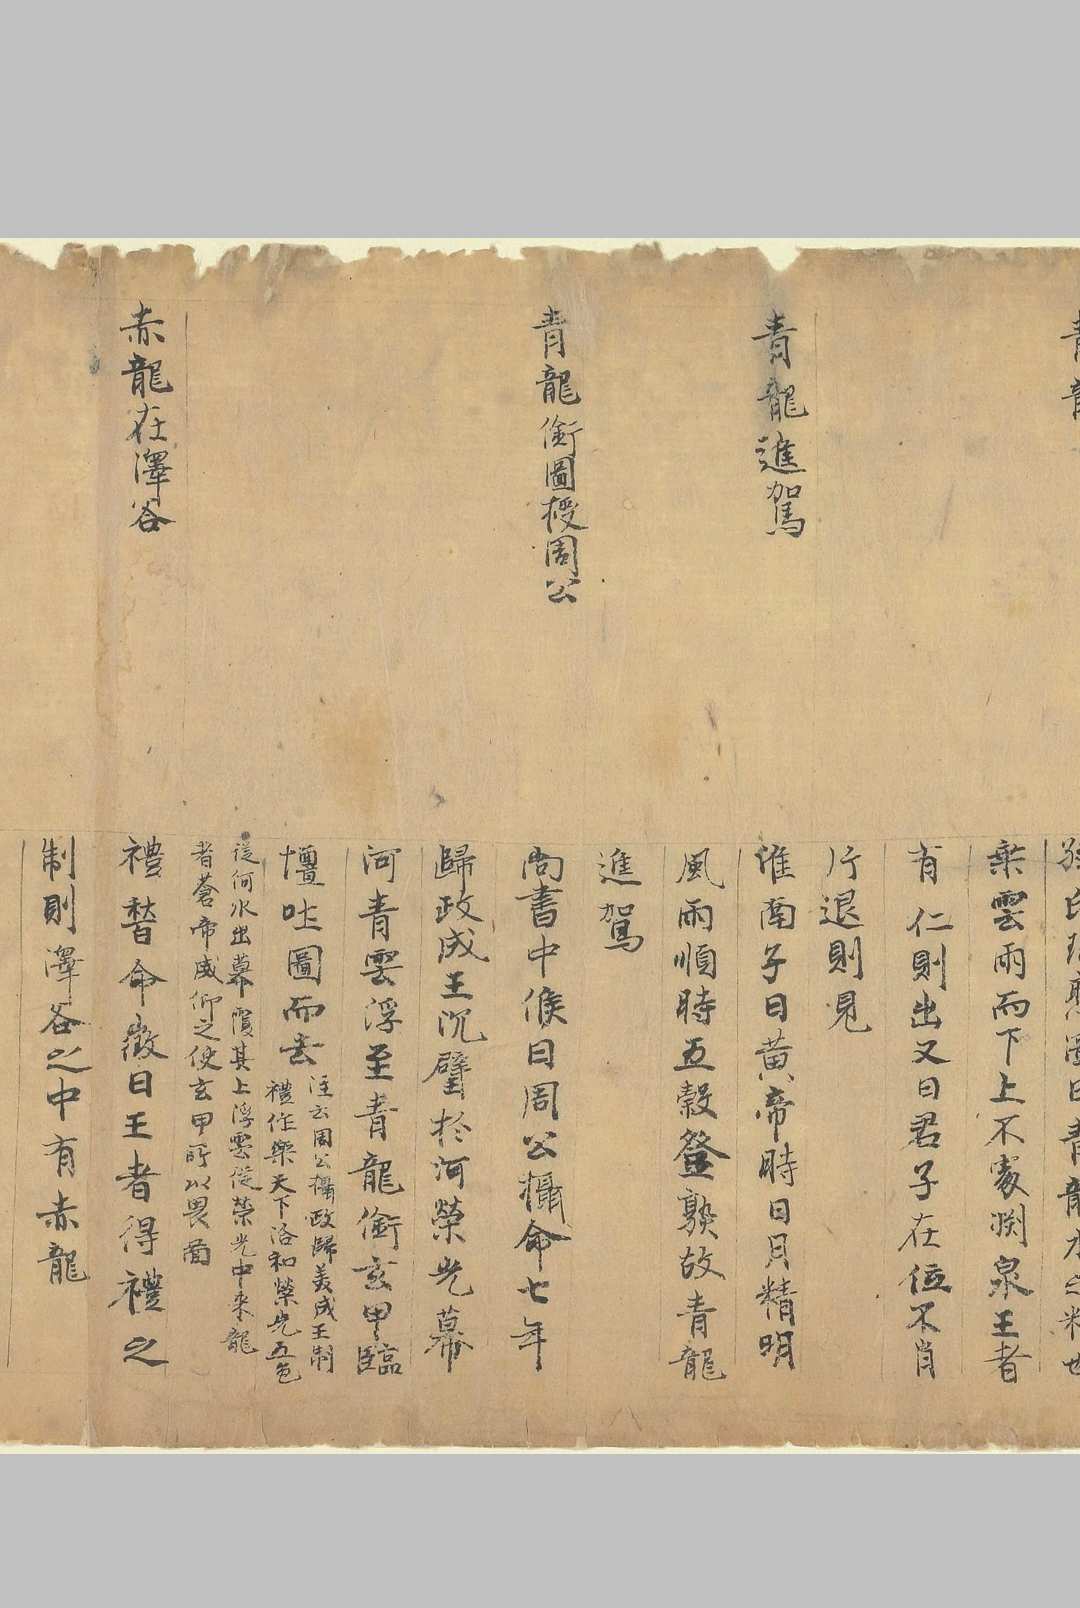 青龍
孫氏瑞應圖曰青龍水之精也
乘雲雨而下上不處渕泉王者
有仁則出又曰君子在位不肖
斤退則見
青龍進駕
淮南子曰黄帝時日月精明
風雨順時五穀登熟故青龍
進駕
青龍銜圖授周公
尚書中候曰周公攝命七年
歸政成王沉璧於河榮光幕
河青雲浮至青龍銜玄甲臨
壇吐圖而去
注云周公攝政歸美成王制
禮作樂天下洛和榮光五色
從何水出幕霣其上浮雲從榮光中来龍
者蒼帝威仰之使玄甲所以畏啚
赤龍在澤谷
禮嵇命徵曰王者得禮之
制則澤谷之中有赤龍